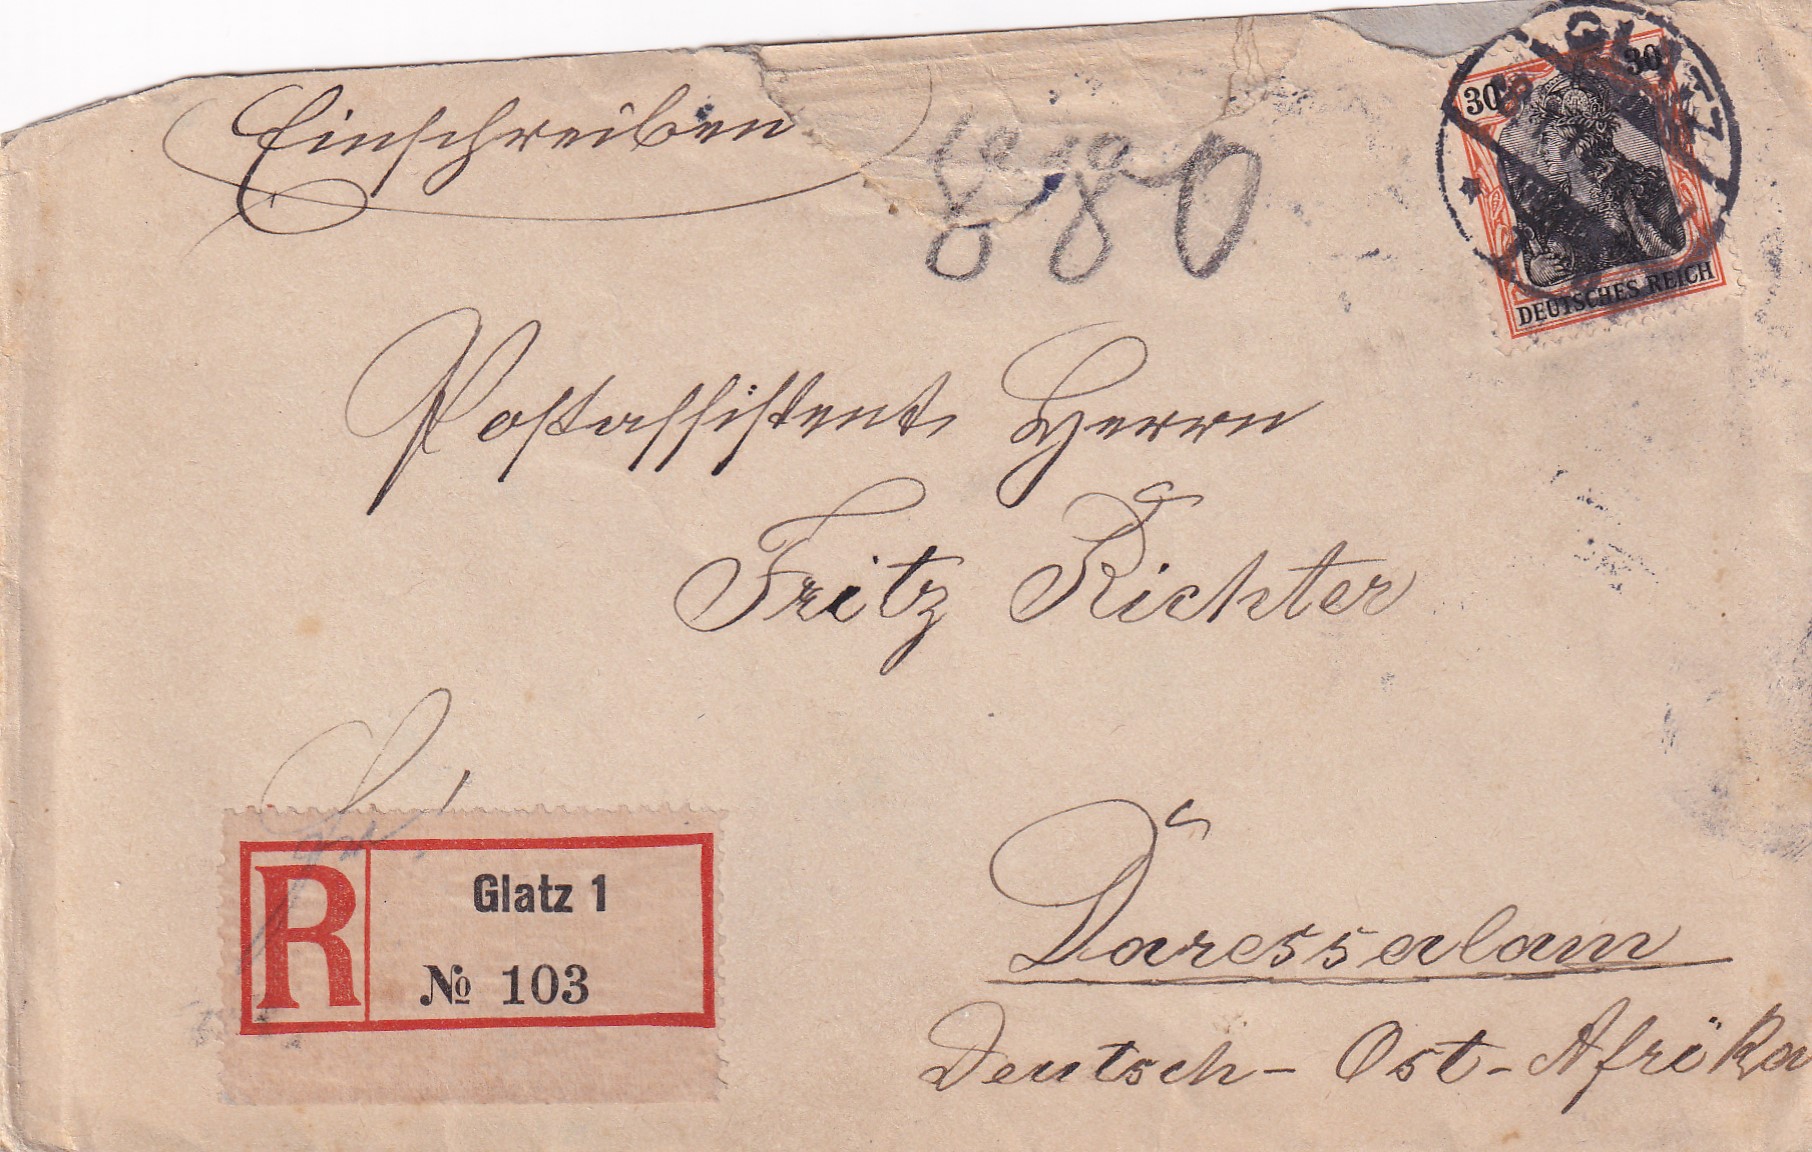 Einschreiben
30 30
GLATZ
DEUTSCHES REICH
Postassistent Herrn
Fritz Richter
R Glatz 1
№ 103
Daressalam
Deutsch-Ost-Afrika